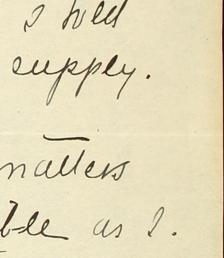 I will
supply.
matters
ble as I.